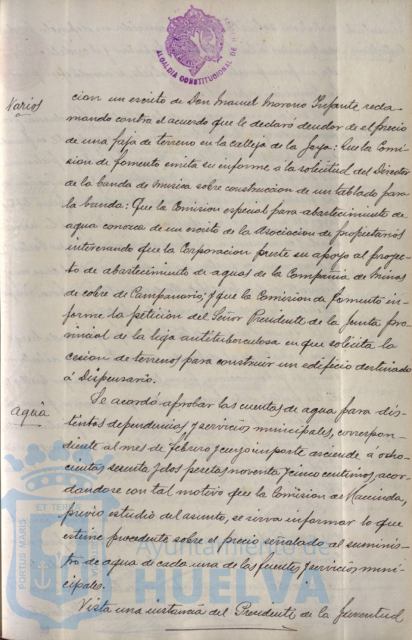 ALCALDIA CONSTITUCIONAL DE
Varios
cion un escrito de Don Manuel Moreno Infante recla-
mando contra el acuerdo que le declaró deudor de el precio
de una faja de terreno en la calleja de la Joya: Que la Comi-
sion de fomento emita su informe á la solicitud del Director
de la banda de musica sobre construccion de un tablado para
la banda: Que la Comision especial para abastecimiento de
agua conozca de un escrito de la Asociacion de propietarios
interesando que la Corporacion preste su apoyo al proyec-
to de abastecimiento de aguas de la Compañia de Minas
de cobre de Campanario; y que la Comision de fomento in-
forme la peticion del Señor Presidente de la Junta pro-
vincial de la liga antituberculosa en que solicita la
cesion de terrenos para construir un edificio destinado
á Dispensario.
agua
Se acordó aprobar las cuentas de agua para dis-
tintas dependencias y servicios municipales, correspon-
diente al mes de febrero y cuyo importe asciende a ocho-
cientas sesenta y dos pesetas noventa y cinco centimos, acor-
dandose con tal motivo que la Comision de Hacienda,
previo estudio del asunto, se sirva informar lo que
estime procedente sobre el precio señalado al suminis-
tro de agua de cada una de las fuentes y servicios muni-
cipales.
Vista una instancia del Presidente de la Juventud
PORTUS MARIS ET TERRE
Ayuntamiento de
HUELVA